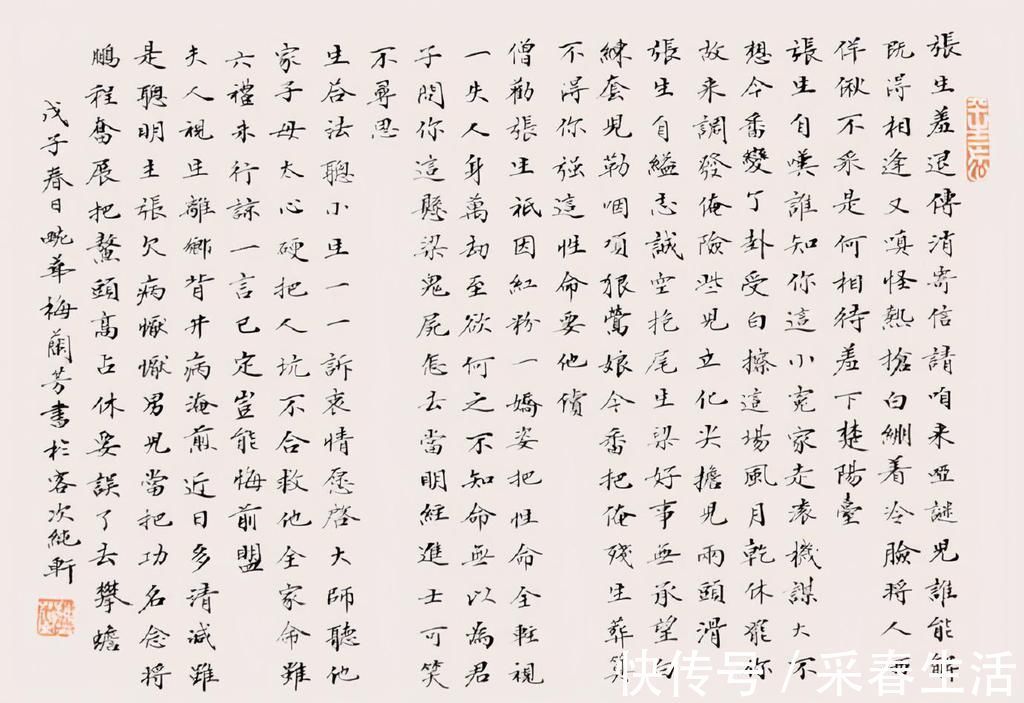 張生羞退傳消寄信請咱來啞謎兒誰能解
既得相逢又嗔怪熱搶白綳着冷臉將人
佯僽不采是何相待羞下楚陽臺
張生自嘆誰知你這小寃家走滚機謀大不
想今番變了卦受白擦這場風月乾休罷你
故來調發俺險些兒立化尖擔兒兩頭滑
張生自縊志誠空抱尾生梁好事無承望白
練套兒勒咽項狠鶯娘今番把俺殘生葬笑
不得你强這性命要他償
僧勸張生祇因紅粉一嬌姿把性命全輕視
一失人身萬劫至欲何之不知命無以為君
子問你這懸梁鬼屍怎去當明經進士可笑
不尋思
生答法聰小生一一訴衷情愿啓大師聽他
家子母太心硬把人坑不合救他全家命雖
六禮未行諒一言已定豈能悔前盟
夫人視生離鄉背井病淹煎近日多清减雖
是聰明主張欠病懨懨男兒當把功名念將
鵬程奮展把鰲頭高占休要誤了去攀蟾
戊子春日畹華梅蘭芳書於客次純軒
快传号 / 采春生活